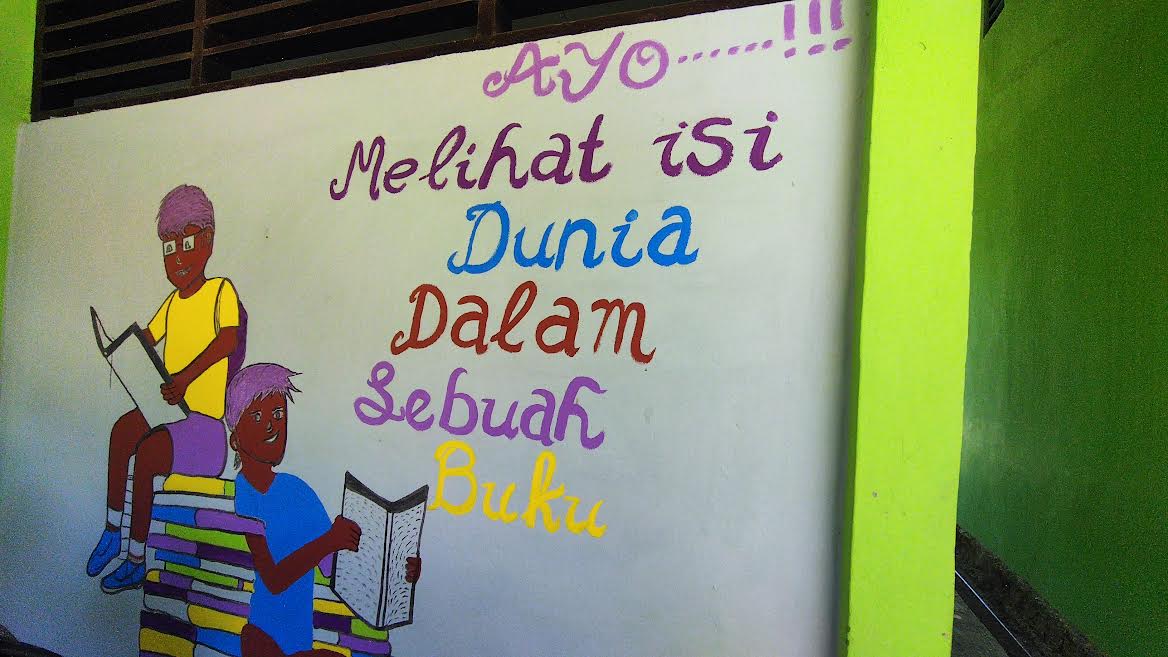 AYO......!!!
Melihat isi
Dunia
Dalam
Sebuah
Buku